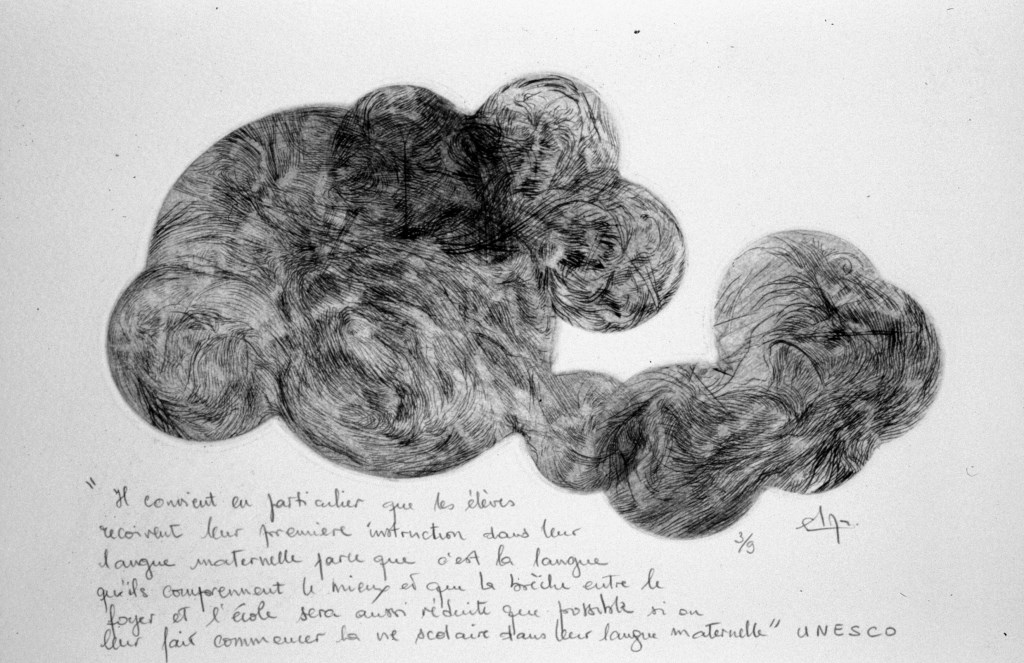 " Il convient en particulier que les élèves
reçoivent leur première instruction dans leur
langue maternelle parce que c'est la langue
qu'ils comprennent le mieux et que la brèche entre le
foyer et l'école sera aussi réduite que possible si on
leur fait commencer la vie scolaire dans leur langue maternelle" UNESCO
3/9